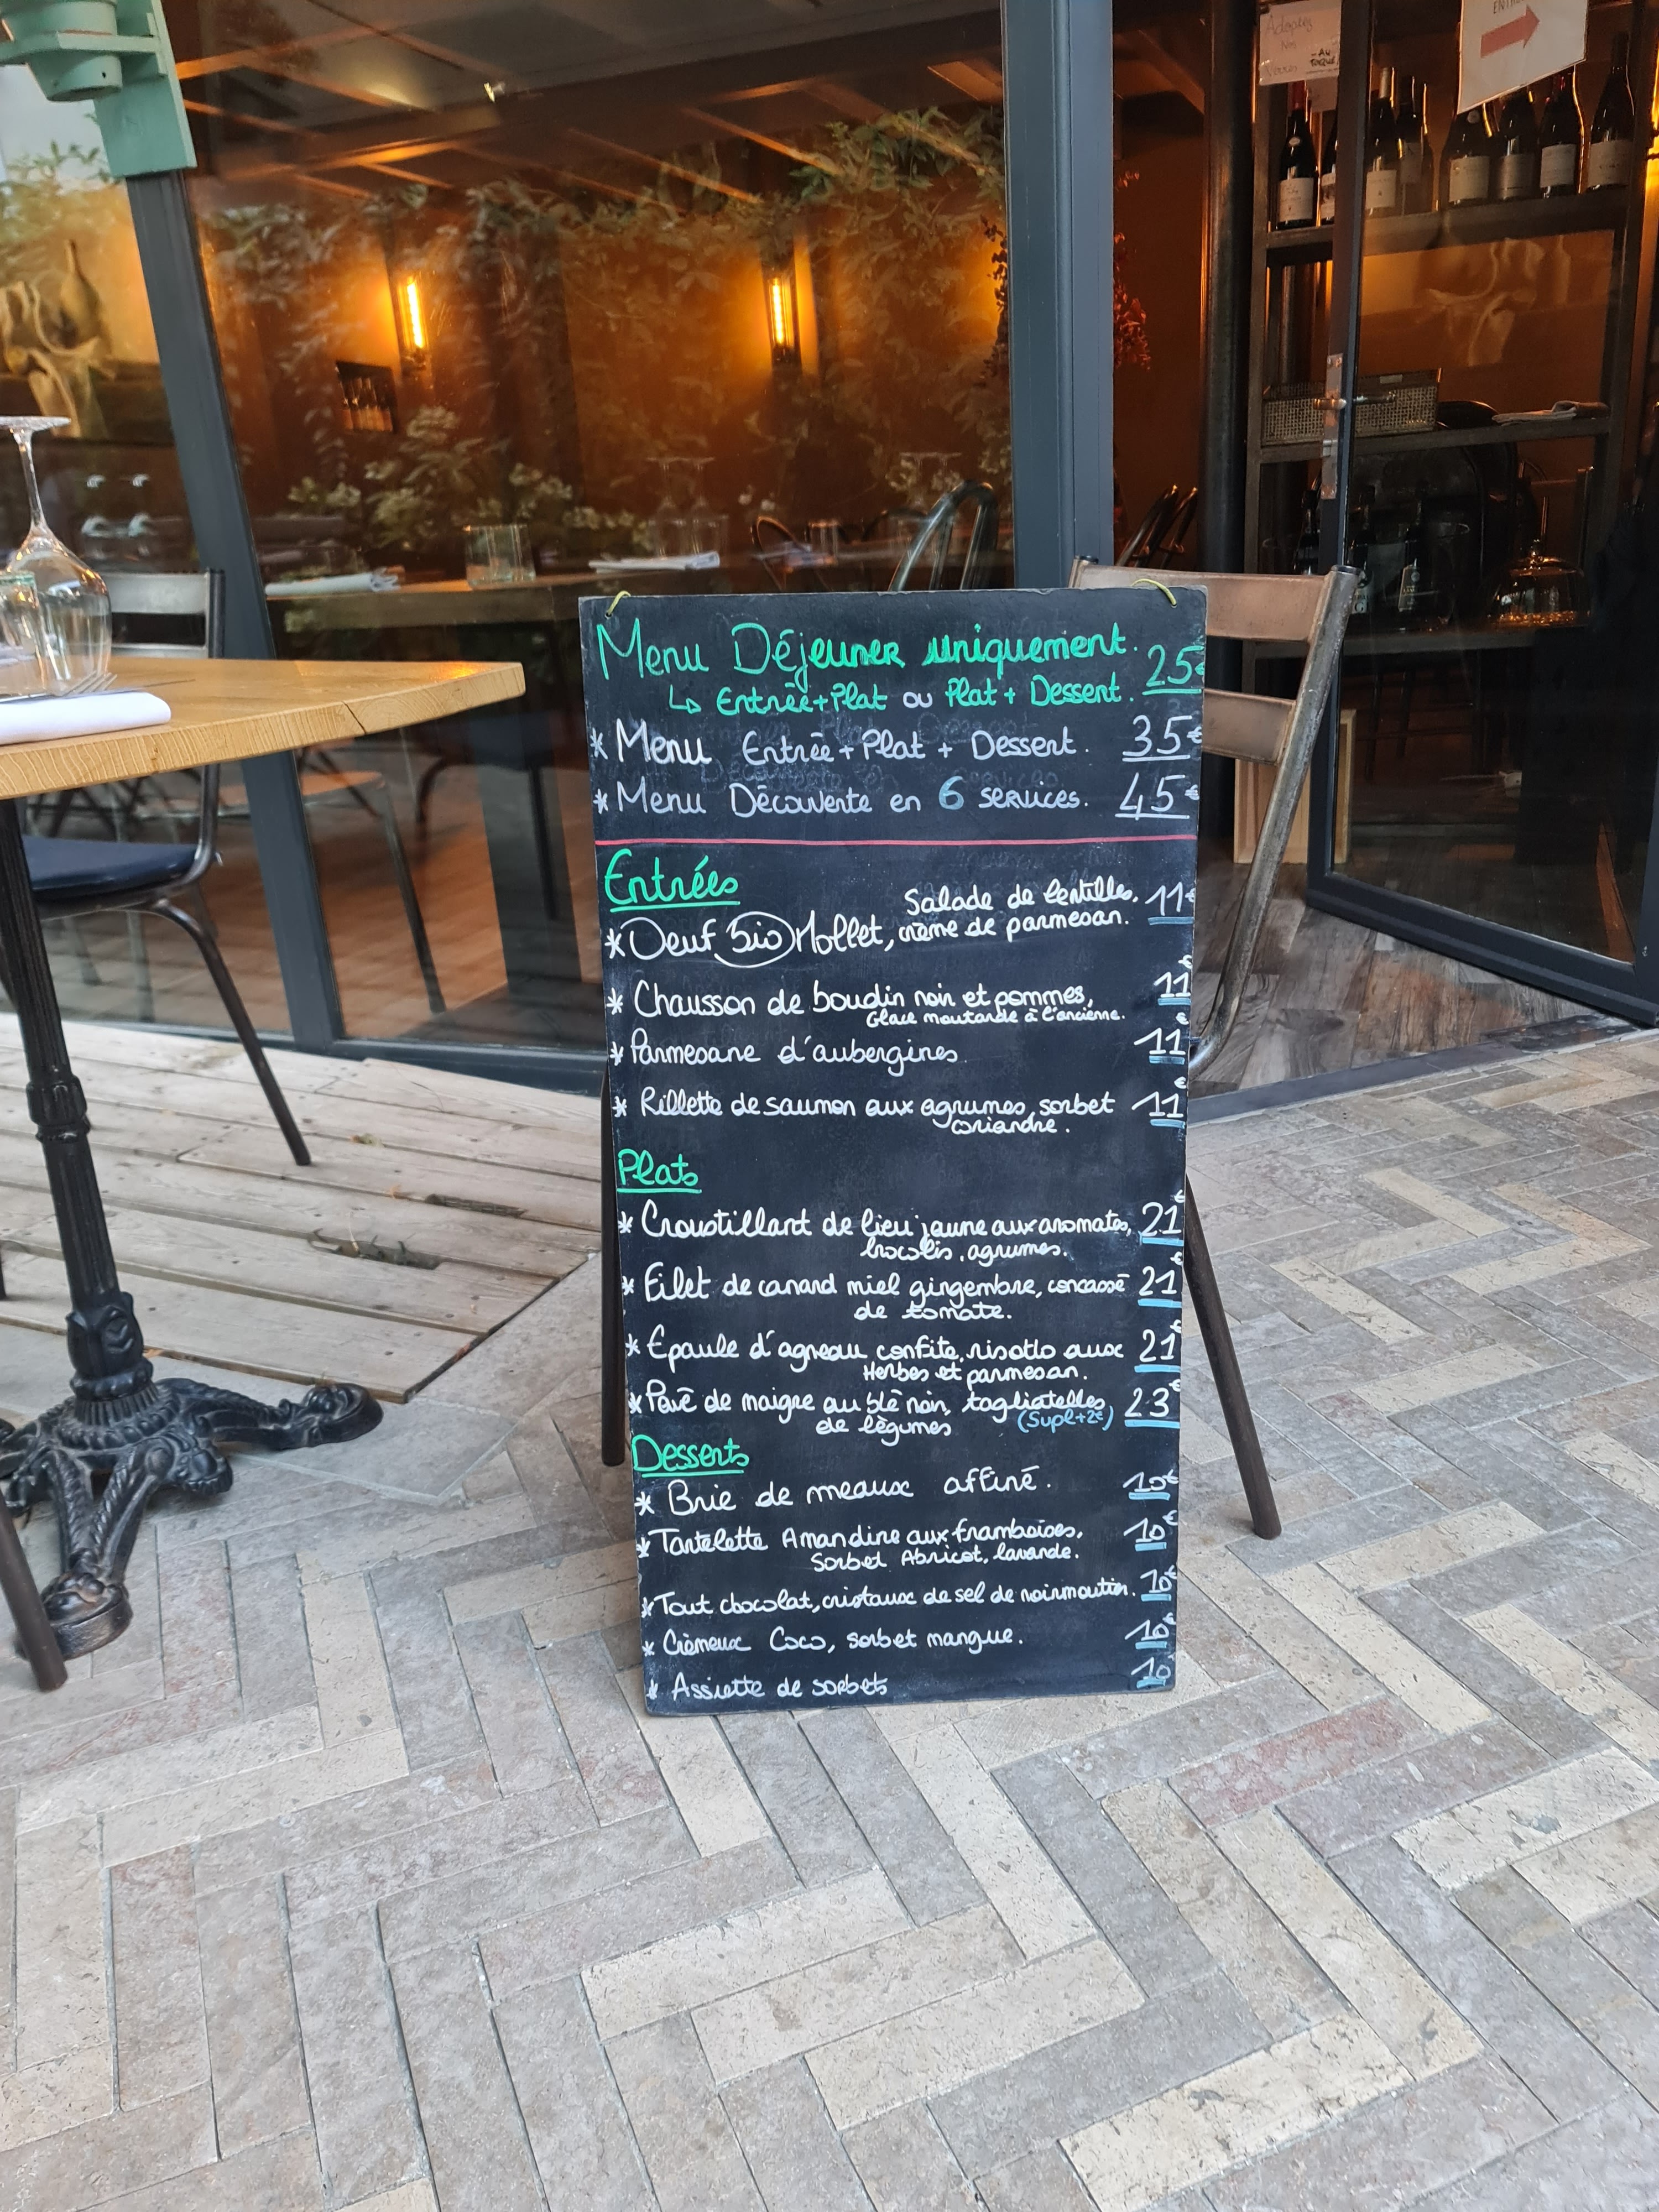 Adoptez
Nos
Verres
-AU
TOQUÉ!
ENTRÉE
Menu Déjeuner uniquement. 25€
↳ Entrée+Plat ou Plat + Dessert.
* Menu Entrée+Plat + Dessert. 35€
* Menu Découverte en 6 services. 45€
Entrées
Salade de lentilles, 11€
* Oeuf bio Mollet, crème de parmesan.
* Chausson de boudin noir et pommes, 11€
Glace moutarde à l'ancienne.
* Parmesane d'aubergines 11€
* Rillette de saumon aux agrumes, sorbet 11€
coriandre.
Plats
* Croustillant de lieu jaune aux aromates, 21€
brocolis, agrumes.
* Filet de canard miel gingembre, concassé 21€
de tomate.
* Epaule d'agneau confite, risotto aux 21€
Herbes et parmesan.
* Pavé de maigre au blé noir, tagliatelles 23€
de légumes (Supl+2€)
Desserts
* Brie de meaux affiné. 10€
* Tartelette Amandine aux framboises, 10€
Sorbet Abricot, lavande.
* Tout chocolat, cristaux de sel de noirmoutier. 10€
* Crèmeux Coco, sorbet mangue. 10€
* Assiette de sorbets 10€